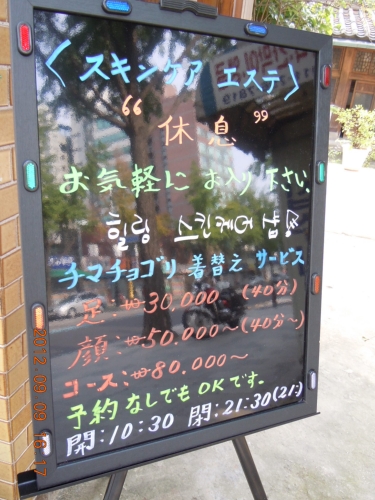 〈スキンケア エステ〉
“休息”
お気軽にお入り下さい.
힐링 스킨케어 숍
チマチョゴリ 着替え サービス
足:₩30,000 (40分)
顔:₩50,000~(40分~)
コース:₩80,000~
予約なしでもOKです。
開:10:30 閉:21:30
2012.09.09 16:17